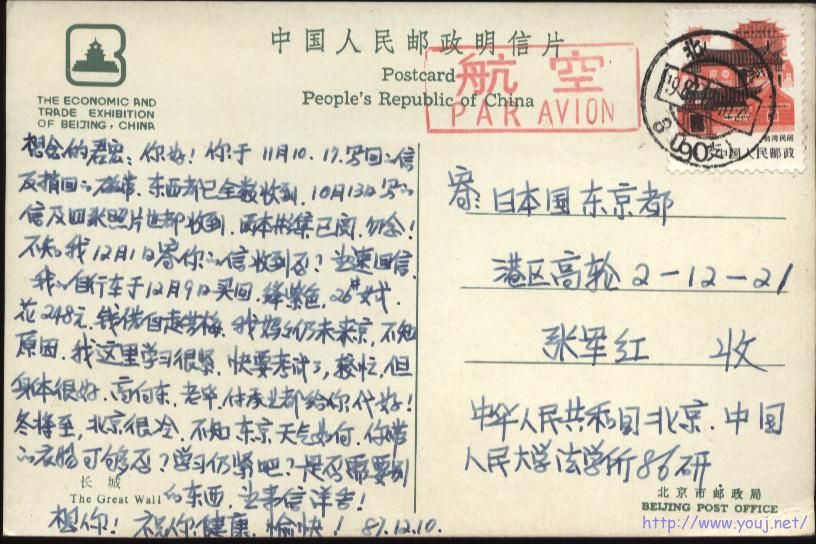 中国人民邮政明信片
Postcard
People's Republic of China
航空
PAR AVION
THE ECONOMIC AND
TRADE EXHIBITION
OF BEIJING, CHINA
北
台湾民居
中国人民邮政
想念的君宏：你好！你于11月10.17.写回的信
及捎回的磁带.东西都已全数收到.10月13日写的
信及四张照片也都收到.两本影集已阅.勿念！
不知我12月1日寄你的信收到否？当速回信.
我的自行车于12月9日买回.绛紫色.26#女式.
花248元.钱借自赵节梅.我妈妈仍未来京,不知
原因.我这里学习很紧.快要考试了,较忙.但
身体很好.高向东.老毕.付都给你代好！
冬将至,北京很冷.不知东京天气如何.你带
的衣物可够否？学习仍紧吧？是否需要别
的东西.当来信详告！
想你！祝你健康.愉快！87.12.10.
长城
The Great Wall
寄：日本国东京都
港区高轮2-12-21
张军红 收
中华人民共和国北京.中国
人民大学法学所86研
北京市邮政局
BEIJING POST OFFICE
http://www.youj.net/